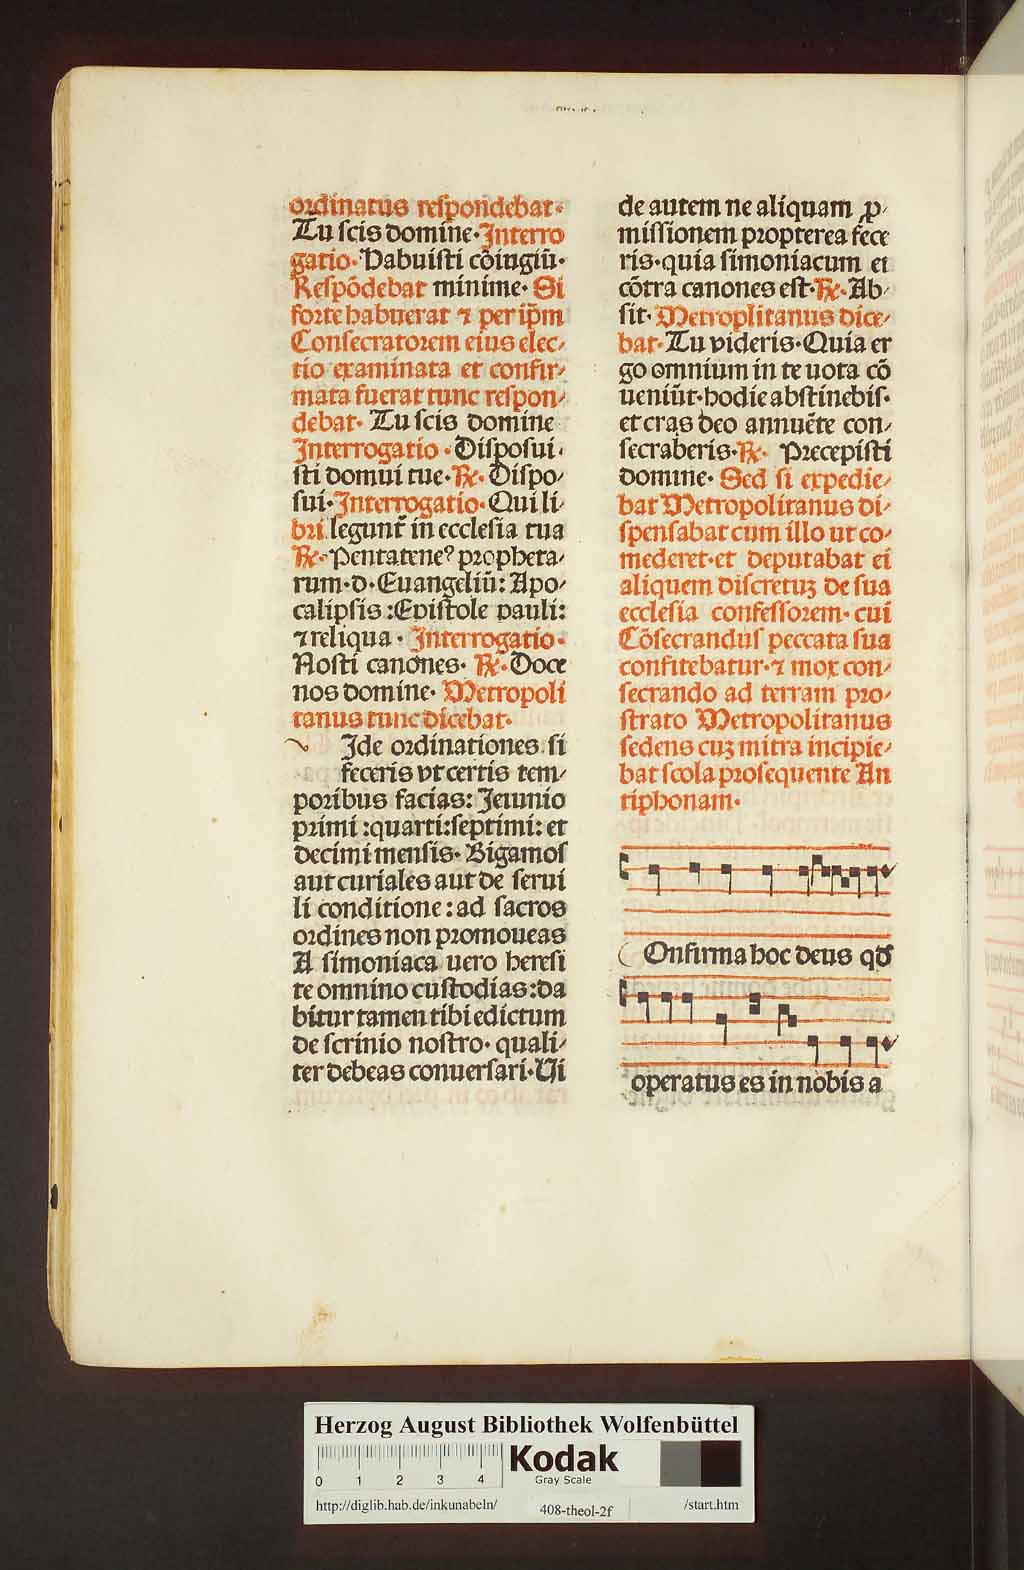 ordinatus respon̄debat·
Tu scis domine· Interro
gatio· Habuisti cōiugiū·
Respōdebat minime· Si
forte habuerat ⁊ per ip̄m
Consecratorem eius elec⸗
tio examinata et confir⸗
mata fuerat tunc respon⸗
debat· Tu scis domine
Interrogatio· Disposui⸗
sti domui tue· ℞· Dispo⸗
sui· Interrogatio· Qui li⸗
bri legunt᷑ in ecclesia tua
℞· Pentateneꝰ propheta⸗
rum·d·Euangeliū: Apo⸗
calipsis: Epistole pauli:
⁊ reliqua· Interrogatio·
Nosti canones· ℞· Doce
nos domine· Metropoli
tanus tunc dicebat·
Ide ordinationes si
feceris vt certis tem⸗
poribus facias: Ieiunio
primi: quarti: septimi: et
decimi mensis· Bigamos
aut curiales aut de serui
li conditione: ad sacros
ordines non promoueas
A simoniaca uero heresi
te omnino custodias: da
bitur tamen tibi edictum
de scrinio nostro· quali⸗
ter debeas conuersari· Ui
de autem ne aliquam ꝓ⸗
missionem propterea fece
ris· quia simoniacum et
cōtra canones est· ℞· Ab⸗
sit· Metroplitanus dice⸗
bat· Tu videris· Quia er
go omnium in te uota cō
ueniūt· hodie abstinebis·
et cras deo annuēte con⸗
secraberis· ℞· Precepisti
domine· Sed si expedie⸗
bat Metropolitanus di⸗
spensabat cum illo ut co⸗
mederet· et deputabat ei
aliquem discretuꝫ de sua
ecclesia confessorem· cui
Cōsecrandus peccata sua
confitebatur· ⁊ mox con⸗
secrando ad terram pro⸗
strato Metropolitanus
sedens cuꝫ mitra incipie⸗
bat scola prosequente An
tiphonam·
Onfirma hoc deus qd̄
operatus es in nobis a
Herzog August Bibliothek Wolfenbüttel
0 1 2 3 4
Kodak
Gray Scale
http://diglib.hab.de/inkunabeln/ 408-theol-2f /start.htm